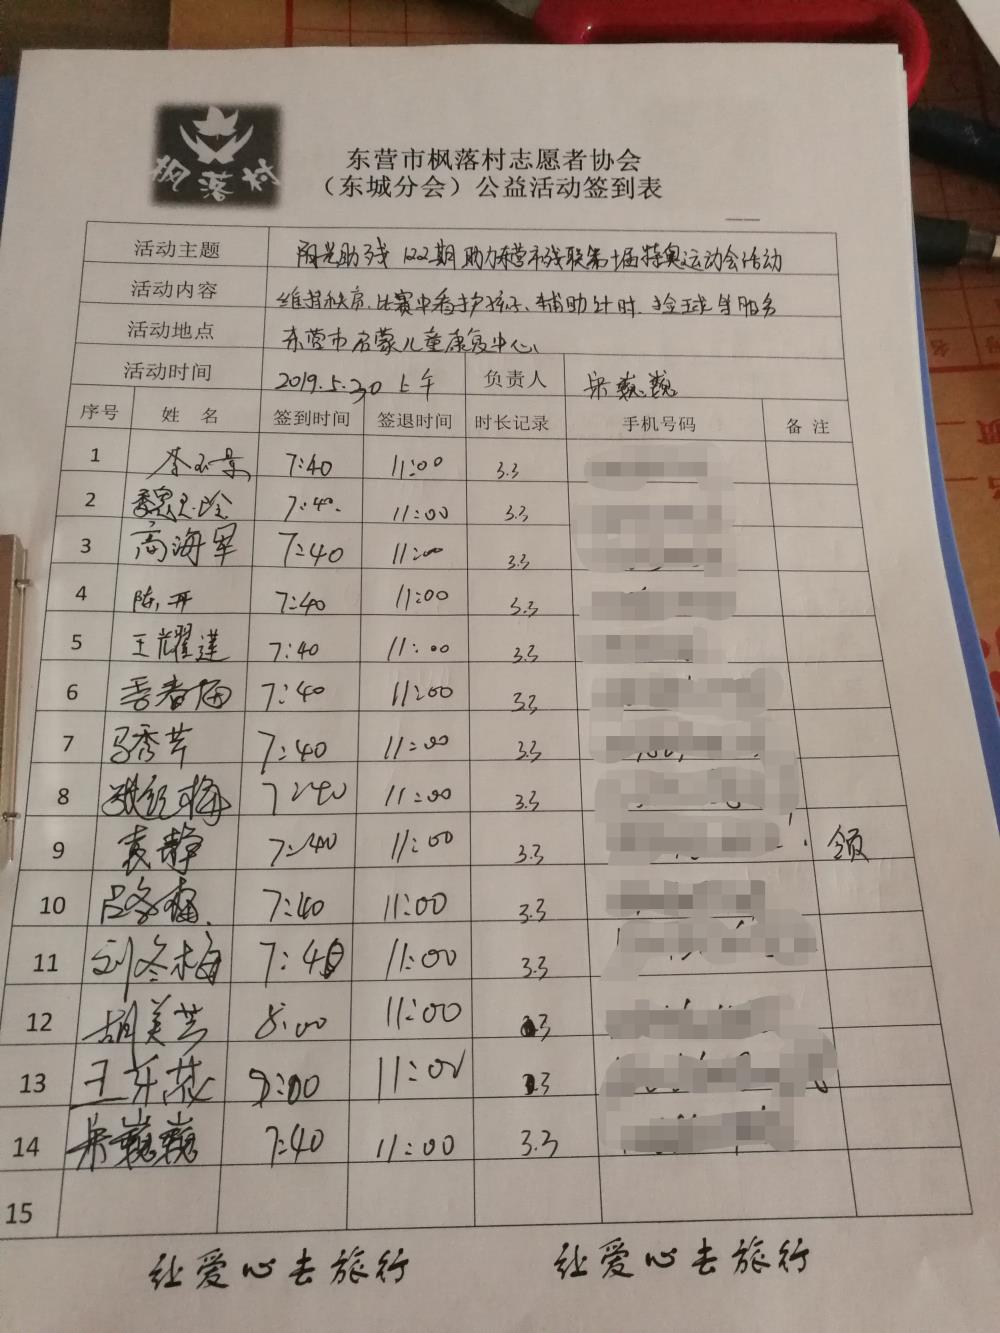 枫落村
东营市枫落村志愿者协会
（东城分会）公益活动签到表
活动主题 阳光助残122期助力东营市残联第十届特奥运动会活动
活动内容 维持秩序、比赛中看护孩子、辅助计时、捡球等服务
活动地点 东营市启蒙儿童康复中心
活动时间 2019.5.30上午 负责人 巍巍
序号 姓名 签到时间 签退时间 时长记录 手机号码 备注
1 7:40 11:00 3.3
2 7:40. 11:00 3.3
3 高海军 7:40 11:00 3.3
4 陈 7:40 11:00 3.3
5 王耀莲 7:40 11:00 3.3
6 7:40 11:00 3.3
7 马秀芹 7:40 11:00 3.3
8 7:40 11:00 3.3
9 袁静 7:40 11:00 3.3 领
10 吕 7:40 11:00 3.3
11 刘冬梅 7:40 11:00 3.3
12 胡美芸 8:00 11:00 3
13 王 8:00 11:00 3
14 巍巍 7:40 11:00 3.3
15
让爱心去旅行 让爱心去旅行